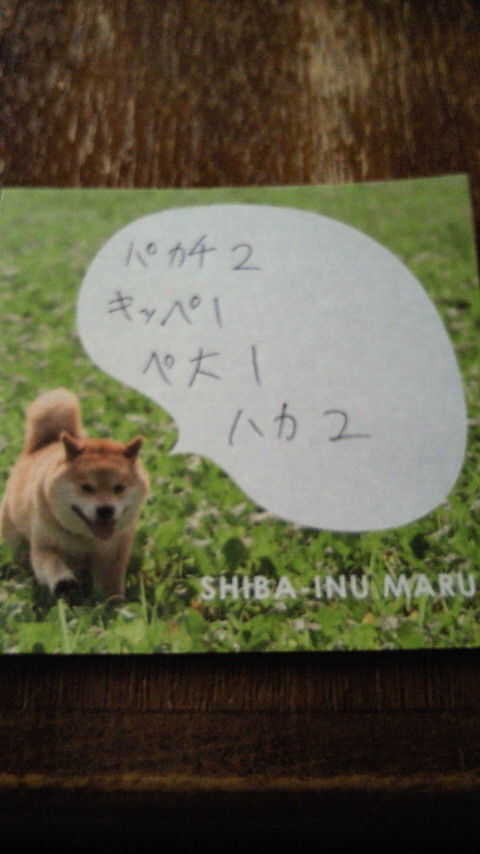 パカチ 2
キッペ 1
ペ大 1
ハカ 2
SHIBA-INU MARU